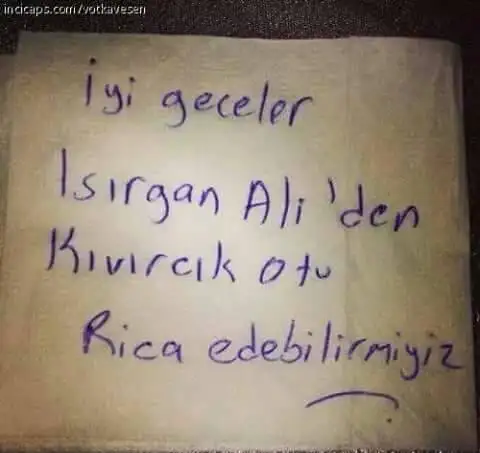 incicaps.com/votkavesen
İyi geceler
Isırgan Ali'den
Kıvırcık otu
Rica edebilirmiyiz